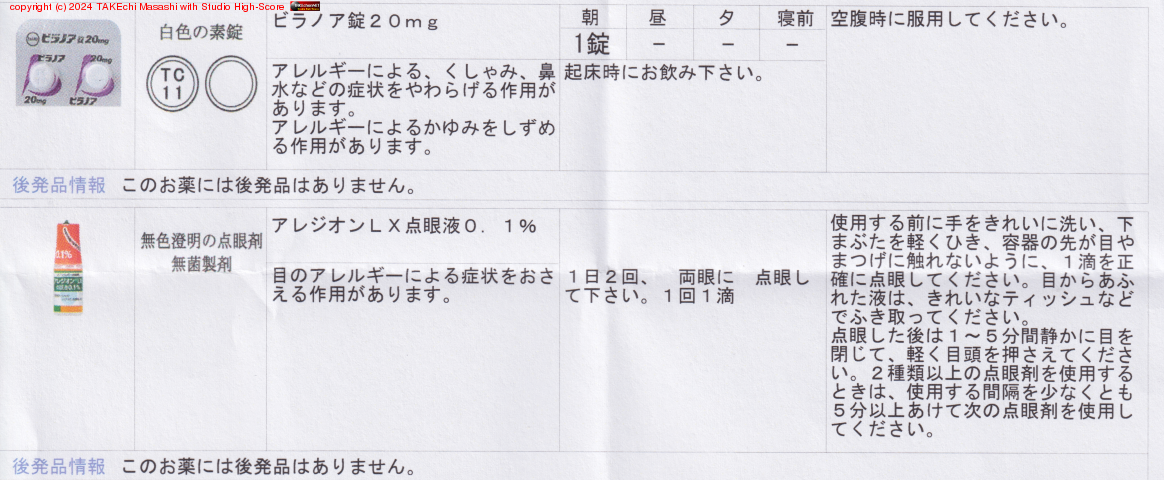 copyright (c) 2024 TAKEchi Masashi with Studio High-Score
ビラノア錠20mg
ビラノア
20mg
20mg
ビラノア
白色の素錠
TC
11
ビラノア錠２０ｍｇ
アレルギーによる、くしゃみ、鼻
水などの症状をやわらげる作用が
あります。
アレルギーによるかゆみをしずめ
る作用があります。
朝 昼 夕 寝前
1錠 － － －
起床時にお飲み下さい。
空腹時に服用してください。
後発品情報 このお薬には後発品はありません。
0.1%
無色澄明の点眼剤
無菌製剤
アレジオンＬＸ点眼液０．１％
目のアレルギーによる症状をおさ
える作用があります。
１日２回、 両眼に 点眼し
て下さい。１回１滴
使用する前に手をきれいに洗い、下
まぶたを軽くひき、容器の先が目や
まつげに触れないように、１滴を正
確に点眼してください。目からあふ
れた液は、きれいなティッシュなど
でふき取ってください。
点眼した後は１～５分間静かに目を
閉じて、軽く目頭を押さえてくださ
い。２種類以上の点眼剤を使用する
ときは、使用する間隔を少なくとも
５分以上あけて次の点眼剤を使用し
てください。
後発品情報 このお薬には後発品はありません。